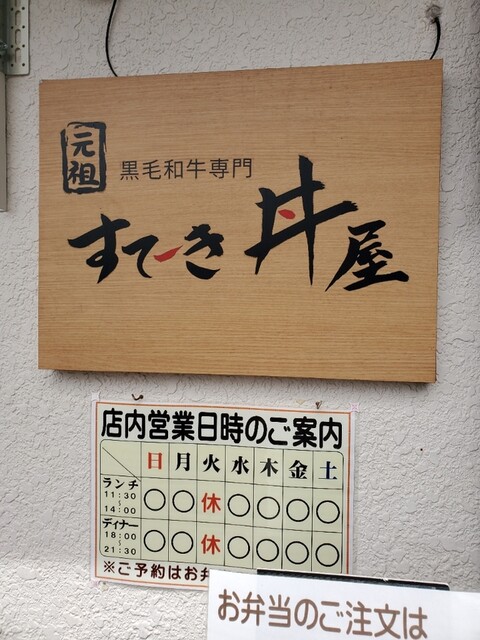 元祖
黒毛和牛専門
すてーき丼屋
店内営業日時のご案内
日 月 火 水 木 金 土
ランチ
11:30
～
14:00
○ ○ 休 ○ ○ ○ ○
ディナー
18:00
～
21:30
○ ○ 休 ○ ○ ○ ○
※ご予約はお
お弁当のご注文は